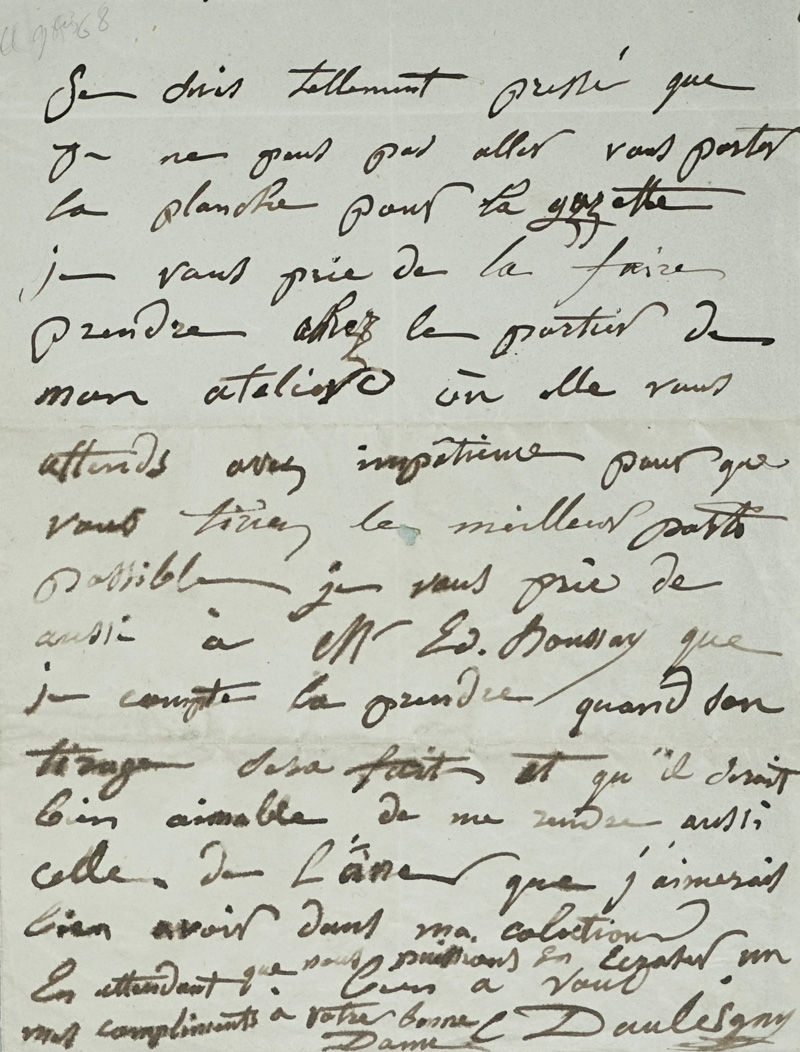 Je suis tellement pressé que
je ne peus pas aller vous porter
la planche pour la gazette
je vous prie de la faire
prendre chez le portier de
mon atelier ou elle vous
attends avec pour que
vous tiriez le meilleur parti
possible je vous prie de
aussi à Mr Ed. Houssay que
je compte la prendre quand son
tirage sera fait et qu'il serait
bien aimable de me rendre aussi
celle de l'âne que j'aimerais
bien avoir dans ma colection
En attendant que nous puissions en un
bien a vous
mes compliments à votre bonne
Dame C Daubigny